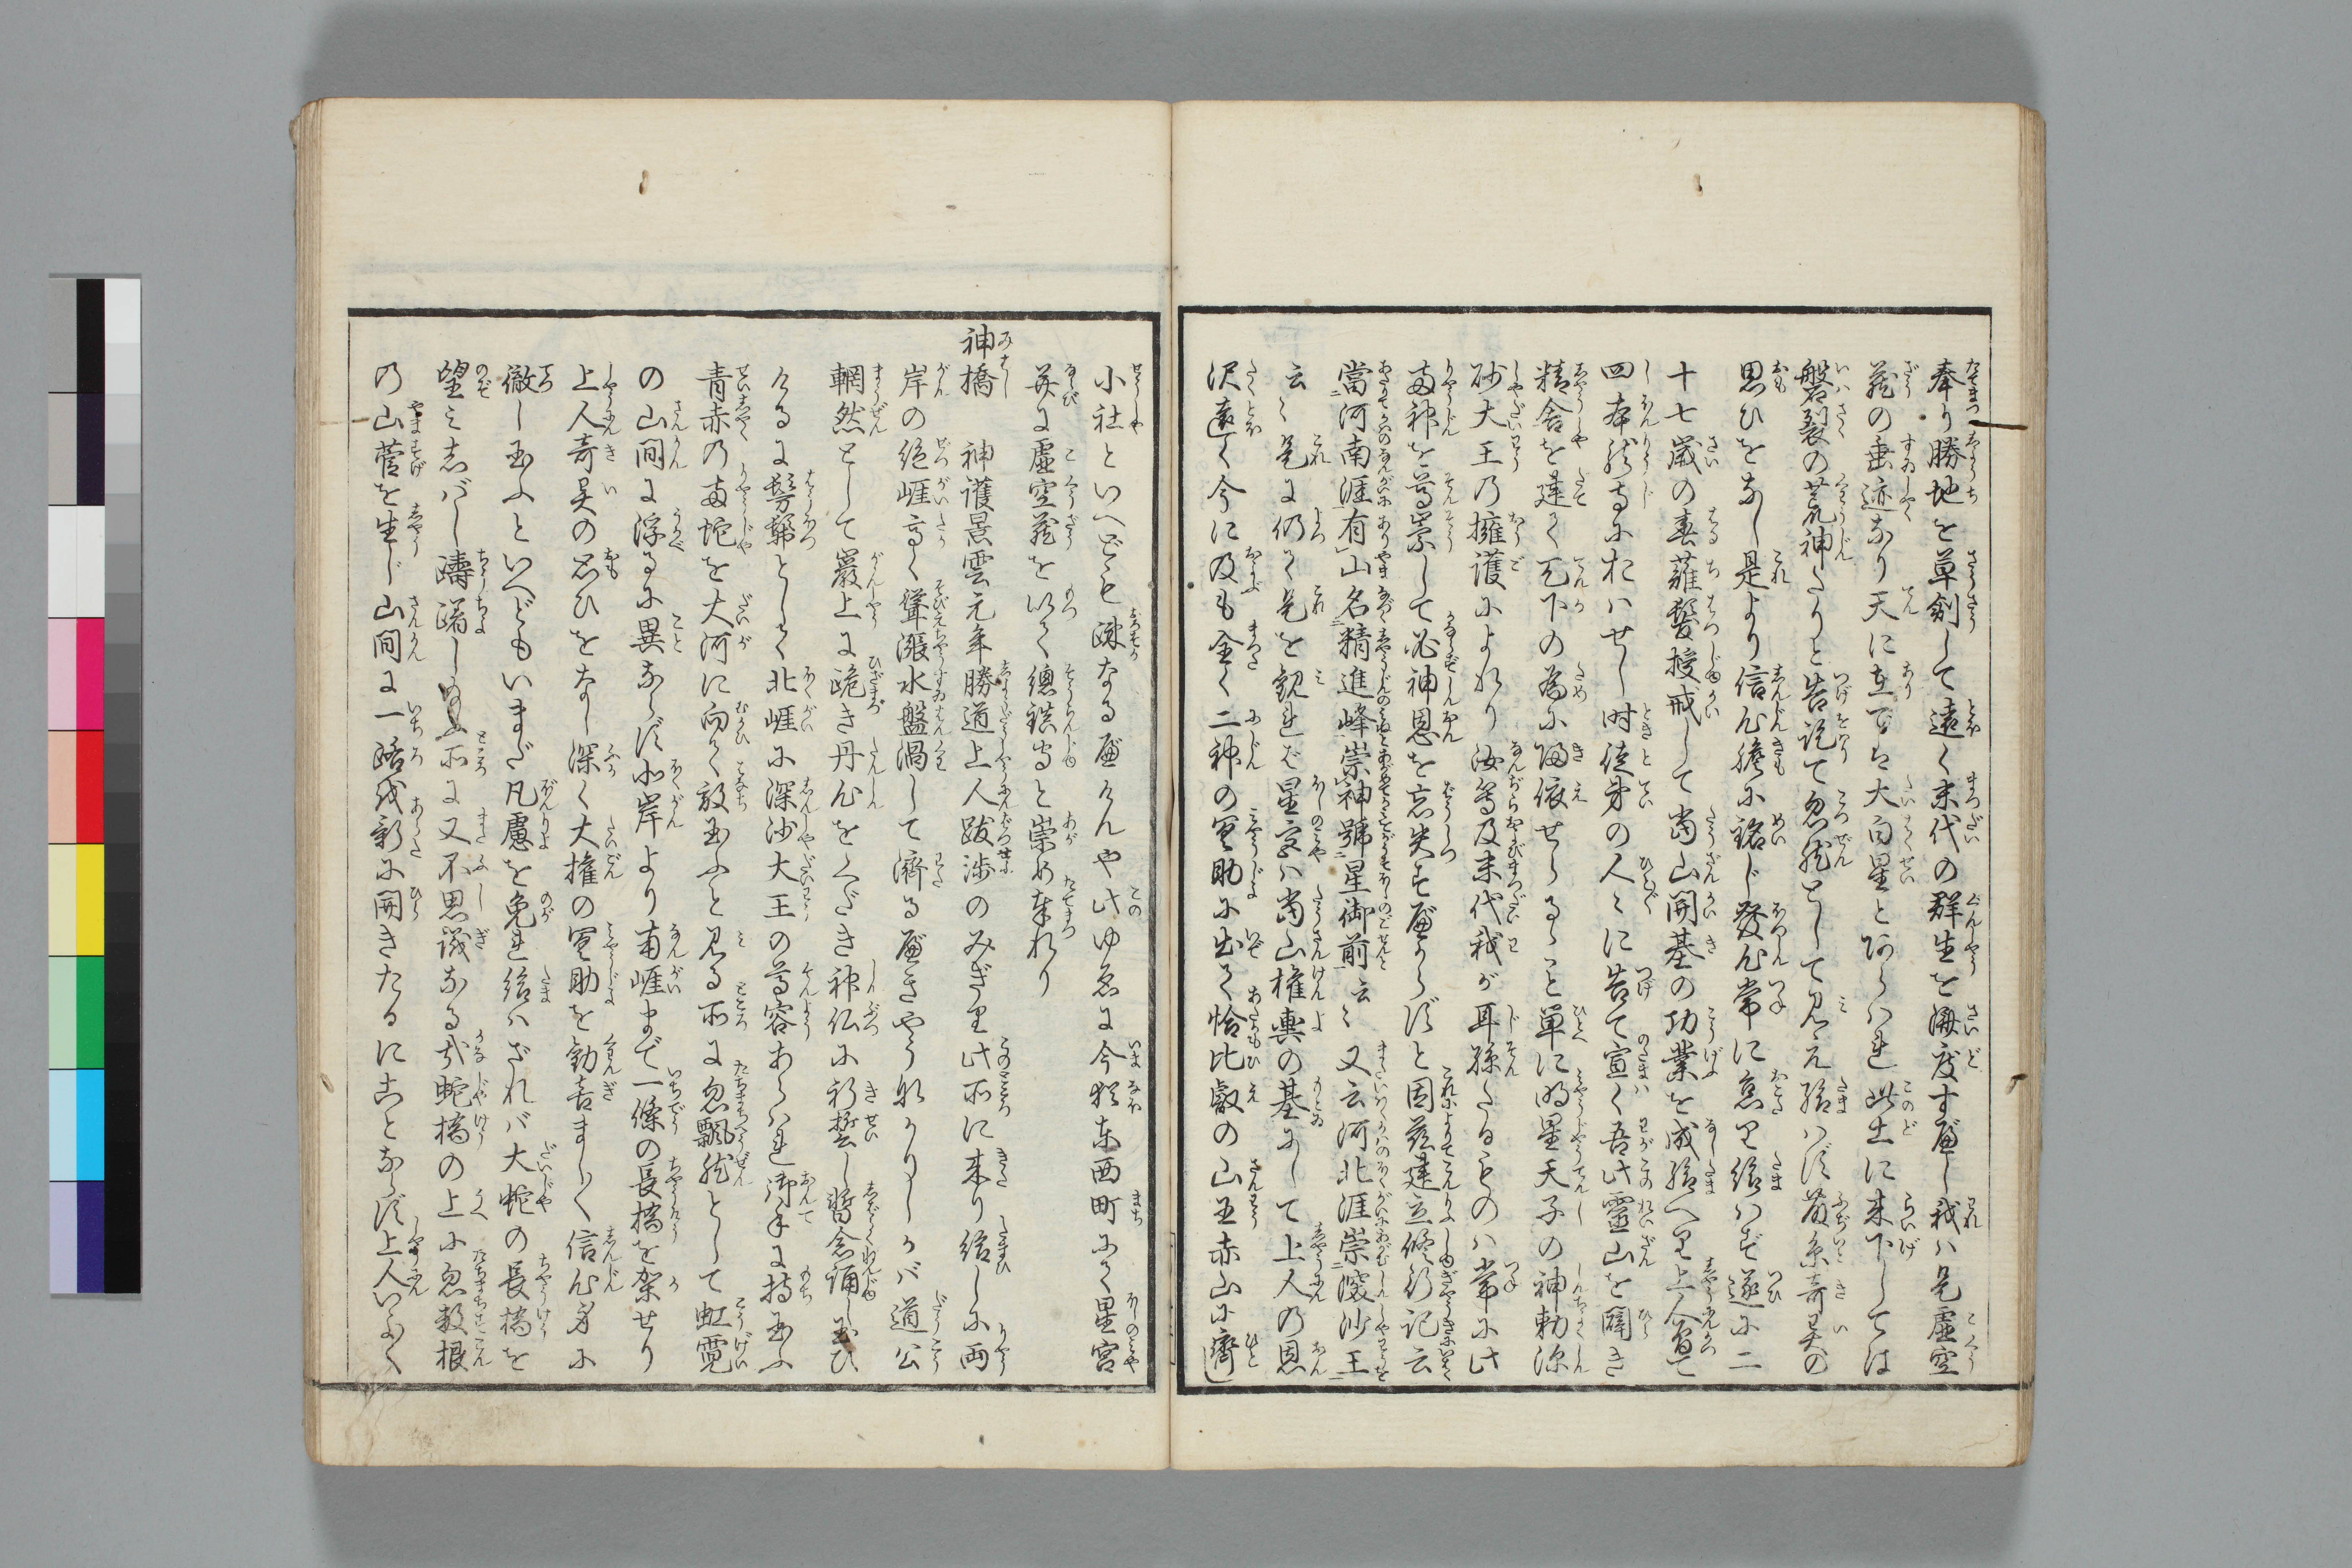 奉り勝地を草創して遠く末代の群生を済度す屋し我ハ是虚空
蔵の垂迹なり天に在てハ大白星とあらハれ此土に来下しては
磐裂の荒神たりと告訖て忽然として見え給ハず爰奇異の
思ひをなし是より信心膽に銘じ發心常に怠り給ハず遂に二
十七歳の春薙髪授戒して当山開基の功業を成給へり上人曽て
四本龍寺におハせし時徒弟の人々に告て宣く吾此靈山を闢き
精舎を建て天下の為に帰依せらるゝこと単に明星天子の神勅深
砂大王の擁護によれり汝等及末代我が耳孫たるものハ常に此
両神を尊崇して必神恩を忘失す屋からずと因茲建立修行記云
當河南涯有山名精進峰崇神號星御前云々又云河北涯崇深沙王
云々是に仍て是を観れバ星宮ハ当山権輿の基にして上人の恩
沢遠く今に及も全く二神の冥助に出て恰比叡の山王赤山に齊し
小社といへども疎なる屋けんや此ゆゑに今猶東西町にて星宮
并に虚空蔵を以て總鎮守と崇め奉れり
神橋　神護景雲元年勝道上人跋渉のみぎり此所に来り給しに両
岸の絶崕高く聳漲水盤渦して濟る屋きやうなかりしかバ道公
輞然として巖上に跪き丹心をくだき神仏に祈誓し暫念誦し玉ひ
けるに髣髴として北崕に深沙大王の尊容あらハれ御手に持玉ふ
青赤の両蛇を大河に向て放玉ふと見る所に忽飄然として虹霓
の山間に浮るに異ならず北岸より南崕まで一條の長橋を架せり
上人奇異の思ひをなし深く大権の冥助を歓喜まし〳〵信心身に
徹し玉ふといへどもいまだ凡慮を免れ給ハざれバ大蛇の長橋を
望みしバし躊躇し玉ふ所に又不思議なる哉蛇橋の上に忽数根
の山菅を生じ山間に一路を新に開きたるにことならず上人いよ〳〵